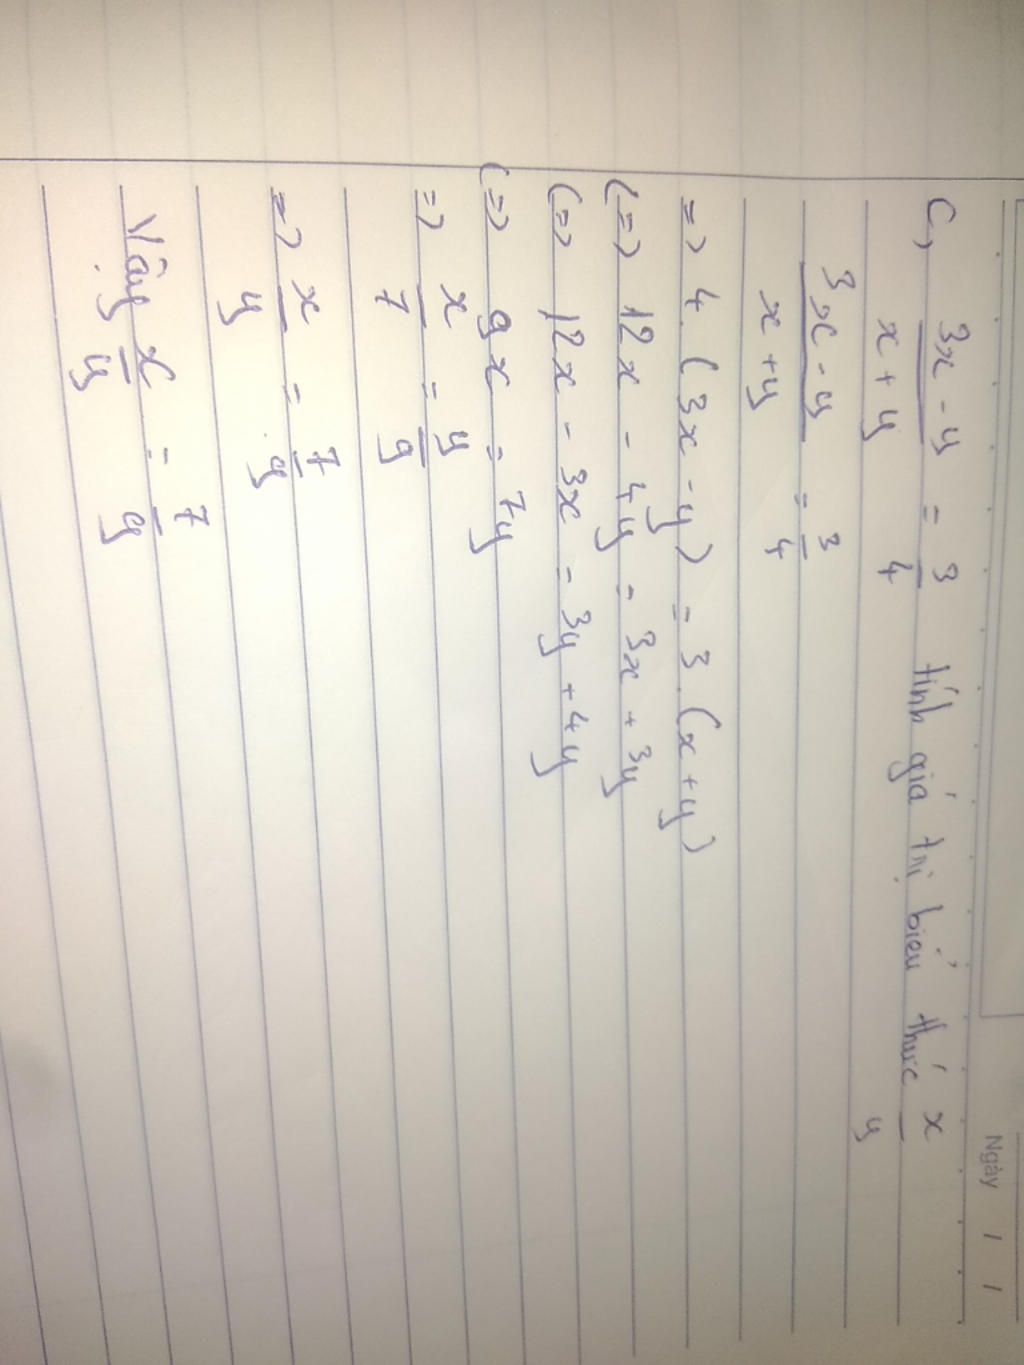 Ngày / /
C, 3x - y / x + y = 3 / 4 tính giá trị biểu thức x / y
3x - y / x + y = 3 / 4
=> 4 . (3x - y) = 3 . (x + y)
(=> 12x - 4y = 3x + 3y
(=> 12x - 3x = 3y + 4y
(=> 9x = 7y
=> x / 7 = y / 9
=> x / y = 7 / 9
Vậy x / y = 7 / 9